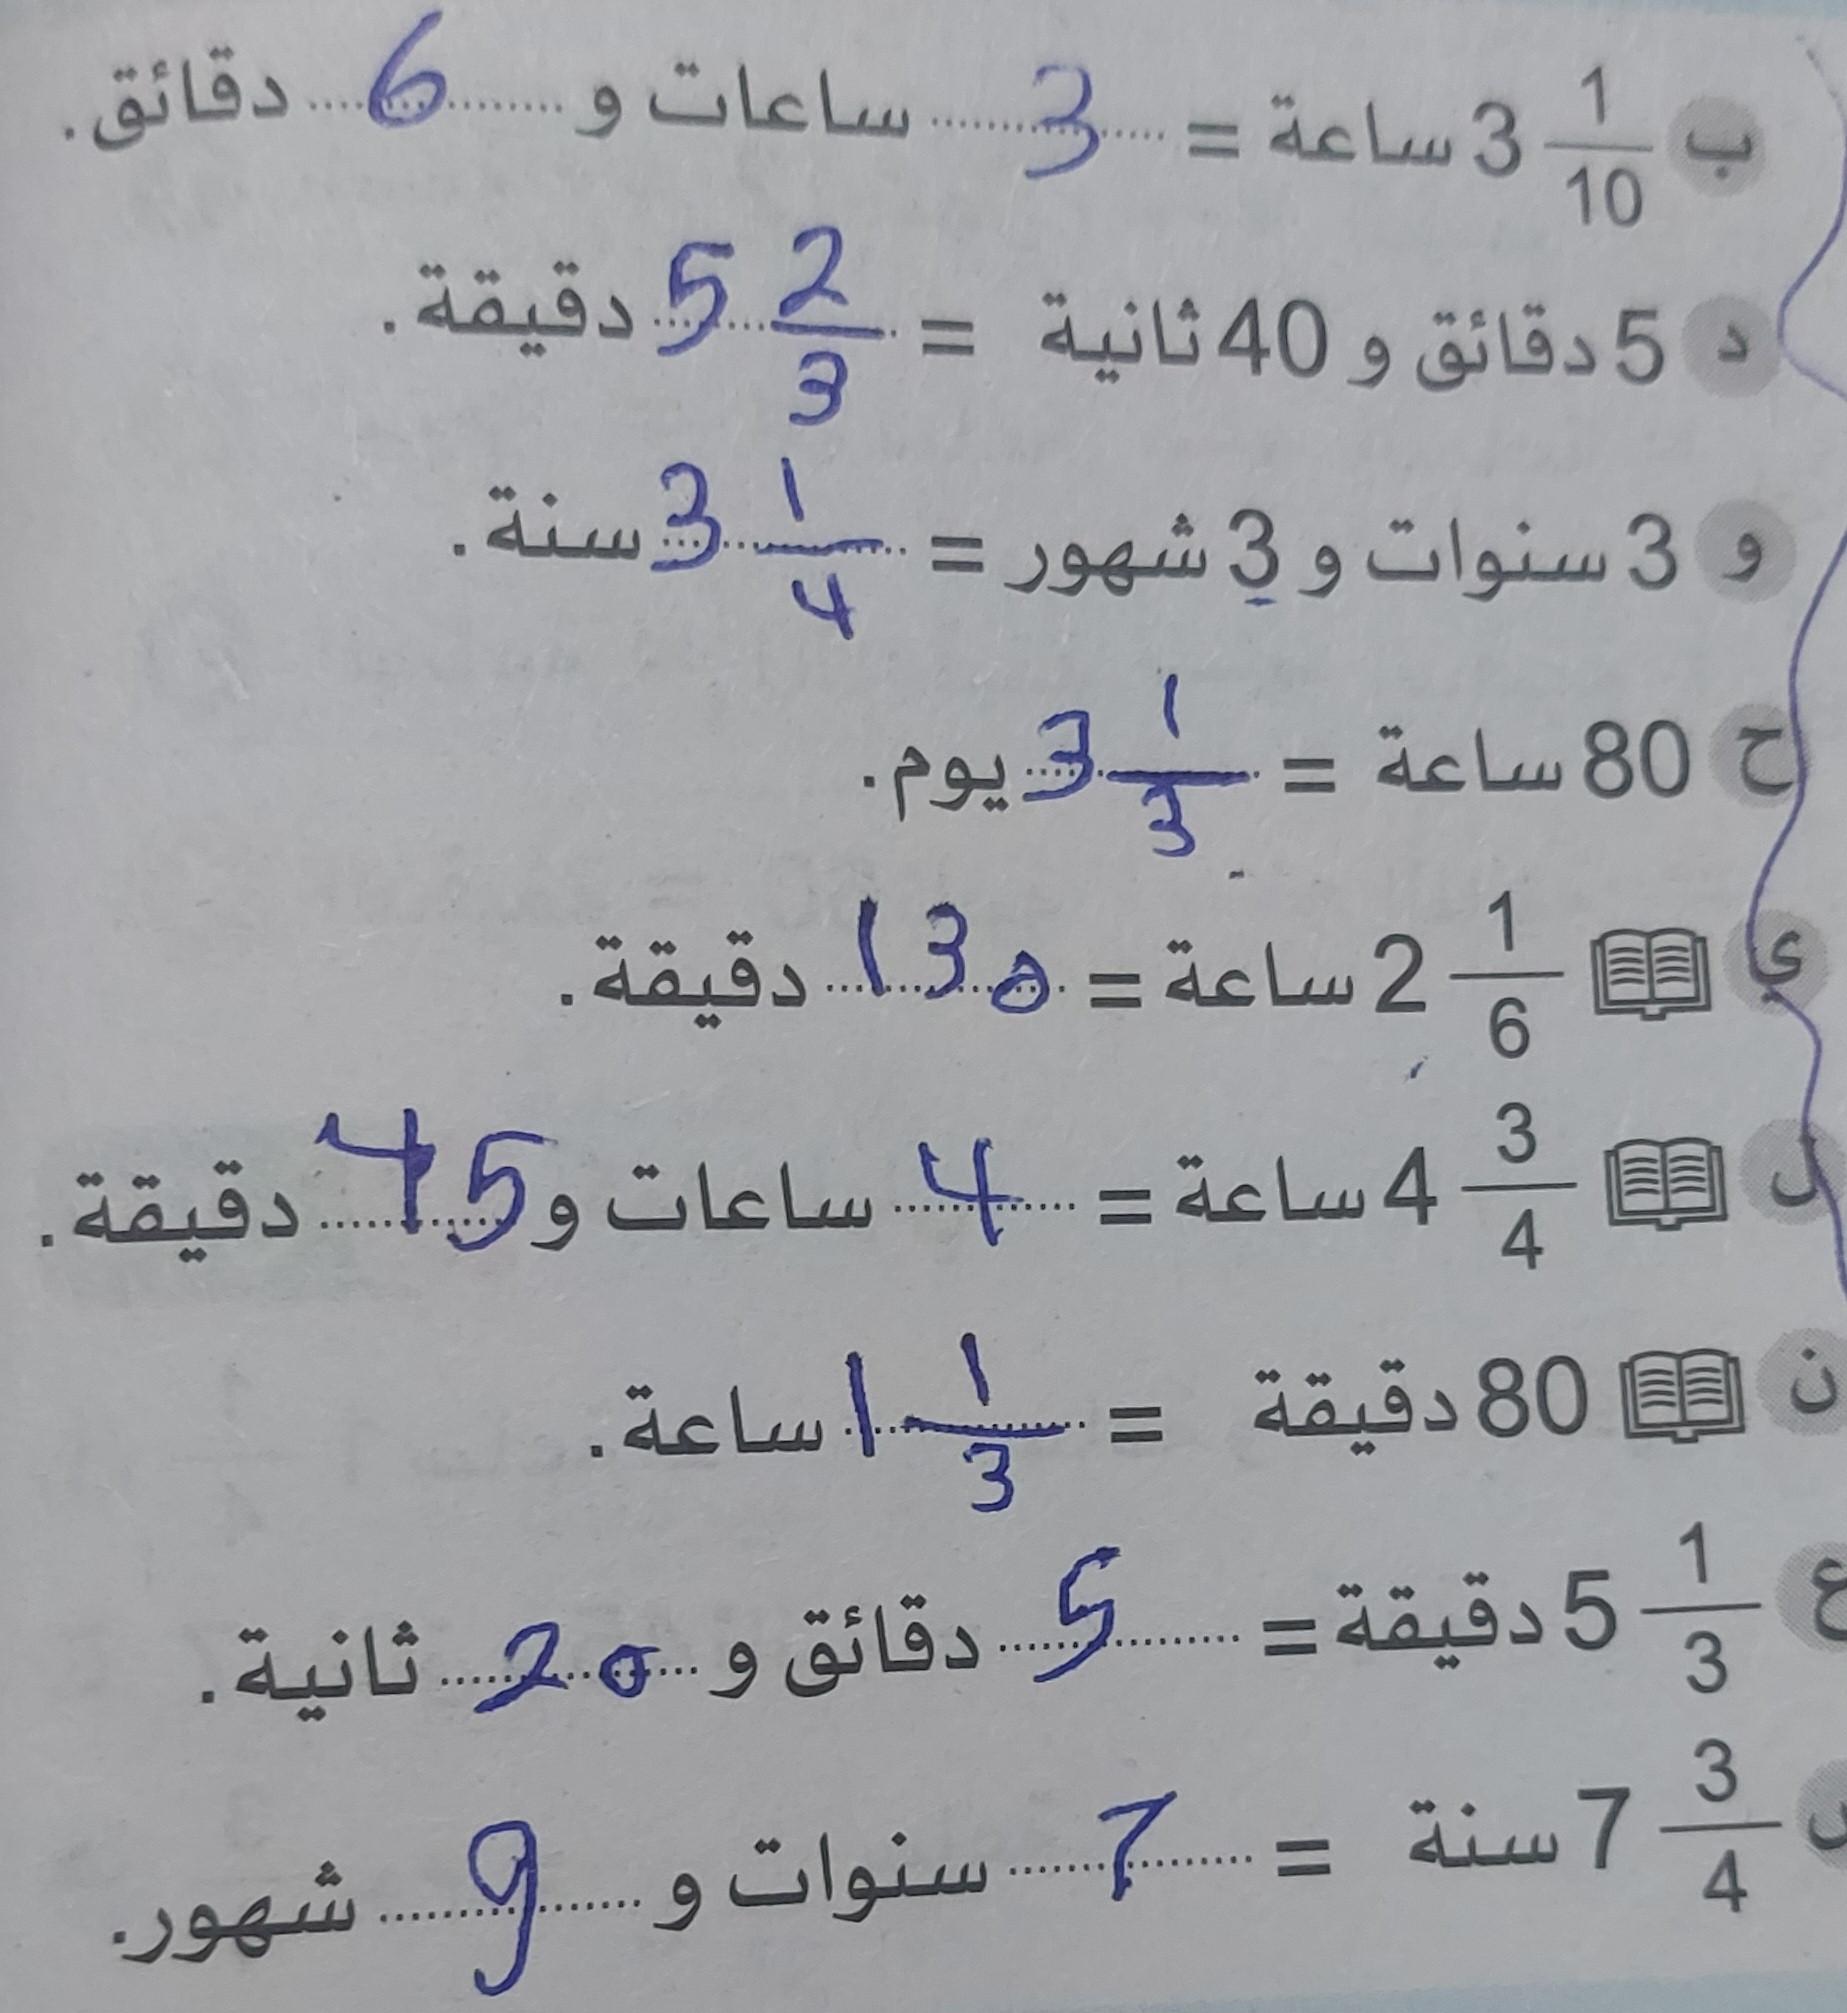 ب 3 1/10 ساعة = 3 ساعات و 6 دقائق.
د 5 دقائق و 40 ثانية = 5 2/3 دقيقة.
و 3 سنوات و 3 شهور = 3 1/4 سنة.
ح 80 ساعة = 3 1/3 يوم.
ي 2 1/6 ساعة = 130 دقيقة.
ل 4 3/4 ساعة = 4 ساعات و 45 دقيقة.
ن 80 دقيقة = 1 1/3 ساعة.
ع 5 1/3 دقيقة = 5 دقائق و 20 ثانية.
7 3/4 سنة = 7 سنوات و 9 شهور.